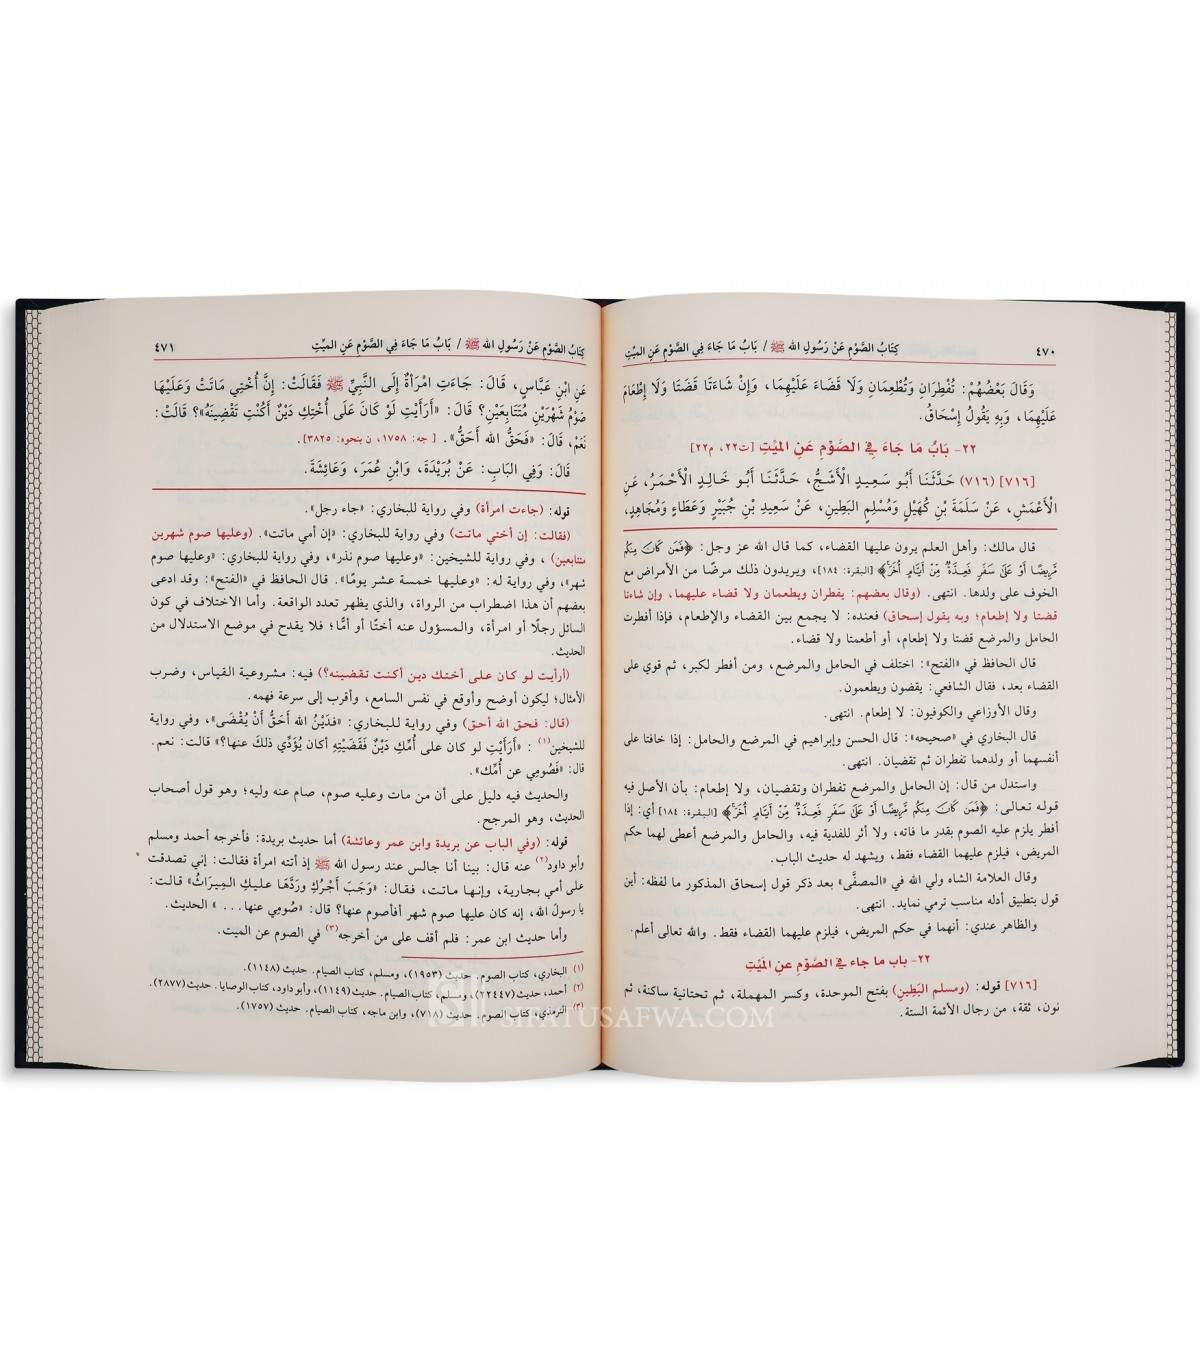 ٤٧٠ كِتَابُ الصَّوْمِ عَنْ رَسُولِ الله ﷺ / بَابُ مَا جَاءَ فِي الصَّوْمِ عَنِ المَيِّتِ
وَقَالَ بَعْضُهُمْ: تُفْطِرَانِ وَتُطْعِمَانِ وَلَا قَضَاءَ عَلَيْهِمَا، وَإِنْ شَاءَتَا قَضَتَا وَلَا إِطْعَامَ
عَلَيْهِمَا، وَبِهِ يَقُولُ إِسْحَاقُ.
٢٢- بَابُ مَا جَاءَ فِي الصَّوْمِ عَنِ المَيِّتِ [ت٢٢، م٢٢]
[٧١٦] (٧١٦) حَدَّثَنَا أَبُو سَعِيدٍ الْأَشَجُّ، حَدَّثَنَا أَبُو خَالِدٍ الْأَحْمَرُ، عَنِ
الْأَعْمَشِ، عَنْ سَلَمَةَ بْنِ كُهَيْلٍ وَمُسْلِمٍ البَطِينِ، عَنْ سَعِيدِ بْنِ جُبَيْرٍ وَعَطَاءٍ وَمُجَاهِدٍ،
قال مالك: وأهل العلم يرون عليها القضاء، كما قال الله عز وجل: ﴿فَمَن كَانَ مِنكُم
مَّرِيضًا أَوْ عَلَىٰ سَفَرٍ فَعِدَّةٌ مِّنْ أَيَّامٍ أُخَرَ﴾ [البقرة: ١٨٤]، ويريدون ذلك مرضًا من الأمراض مع
الخوف على ولدها. انتهى. (وقال بعضهم: يفطران ويطعمان ولا قضاء عليهما، وإن شاءتا
قضتا ولا إطعام؛ وبه يقول إسحاق) فعنده: لا يجمع بين القضاء والإطعام، فإذا أفطرت
الحامل والمرضع قضتا ولا إطعام، أو أطعمتا ولا قضاء.
قال الحافظ في «الفتح»: اختلف في الحامل والمرضع، ومن أفطر لكبر، ثم قوي على
القضاء بعد، فقال الشافعي: يقضون ويطعمون.
وقال الأوزاعي والكوفيون: لا إطعام. انتهى.
قال البخاري في «صحيحه»: قال الحسن وإبراهيم في المرضع والحامل: إذا خافتا على
أنفسهما أو ولدهما تفطران ثم تقضيان. انتهى.
واستدل من قال: إن الحامل والمرضع تفطران وتقضيان، ولا إطعام: بأن الأصل فيه
قوله تعالى: ﴿فَمَن كَانَ مِنكُم مَّرِيضًا أَوْ عَلَىٰ سَفَرٍ فَعِدَّةٌ مِّنْ أَيَّامٍ أُخَرَ﴾ [البقرة: ١٨٤] أي: إذا
أفطر يلزم عليه الصوم بقدر ما فاته، ولا أثر للفدية فيه، والحامل والمرضع أعطى لهما حكم
المريض، فيلزم عليهما القضاء فقط، ويشهد له حديث الباب.
وقال العلامة الشاه ولي الله في «المصفَّى» بعد ذكر قول إسحاق المذكور ما لفظه: أين
قول بتطبيق أدله مناسب ترمي نمايد. انتهى.
والظاهر عندي: أنهما في حكم المريض، فيلزم عليهما القضاء فقط. والله تعالى أعلم.
٢٢- باب ما جاء في الصَّوْمِ عَنِ المَيِّتِ
[٧١٦] قوله: (ومسلم البَطِينِ) بفتح الموحدة، وكسر المهملة، ثم تحتانية ساكنة، ثم
نون، ثقة، من رجال الأئمة الستة.
كِتَابُ الصَّوْمِ عَنْ رَسُولِ الله ﷺ / بَابُ مَا جَاءَ فِي الصَّوْمِ عَنِ المَيِّتِ ٤٧١
عَنِ ابْنِ عَبَّاسٍ، قَالَ: جَاءَتِ امْرَأَةٌ إِلَى النَّبِيِّ ﷺ فَقَالَتْ: إِنَّ أُخْتِي مَاتَتْ وَعَلَيْهَا
صَوْمُ شَهْرَيْنِ مُتَتَابِعَيْنِ؟ قَالَ: «أَرَأَيْتِ لَوْ كَانَ عَلَى أُخْتِكِ دَيْنٌ أَكُنْتِ تَقْضِينَهُ»؟ قَالَتْ:
نَعَمْ، قَالَ: «فَحَقُّ الله أَحَقُّ». [جه: ١٧٥٨، ن بنحوه: ٣٨٢٥].
قَالَ: وَفِي البَابِ: عَنْ بُرَيْدَةَ، وَابْنِ عُمَرَ، وَعَائِشَةَ.
قوله: (جاءت امرأة) وفي رواية للبخاري: «جاء رجل».
(فقالت: إن أختي ماتت) وفي رواية للبخاري: «إن أمي ماتت». (وعليها صوم شهرين
متتابعين) ، وفي رواية للشيخين: «وعليها صوم نذر»، وفي رواية للبخاري: «وعليها صوم
شهر»، وفي رواية له: «وعليها خمسة عشر يومًا». قال الحافظ في «الفتح»: وقد ادعى
بعضهم أن هذا اضطراب من الرواة، والذي يظهر تعدد الواقعة. وأما الاختلاف في كون
السائل رجلًا أو امرأة، والمسؤول عنه أختًا أو أمًّا؛ فلا يقدح في موضع الاستدلال من
الحديث.
(أرأيت لو كان على أختك دين أكنت تقضينه؟) فيه: مشروعية القياس، وضرب
الأمثال؛ ليكون أوضح وأوقع في نفس السامع، وأقرب إلى سرعة فهمه.
(قال: فحق الله أحق) وفي رواية للبخاري: «فدَيْنُ الله أَحَقُّ أَنْ يُقْضَى»، وفي رواية
للشيخين(١) : «أَرَأَيْتِ لو كان على أُمِّكِ دَيْنٌ فَقَضَيْتِهِ أكان يُؤَدِّي ذلكَ عنها»؟ قالت: نعم.
قال: «فَصُومِي عن أُمِّك».
والحديث فيه دليل على أن من مات وعليه صوم، صام عنه وليه؛ وهو قول أصحاب
الحديث، وهو المرجح.
قوله: (وفي الباب عن بريدة وابن عمر وعائشة) أما حديث بريدة: فأخرجه أحمد ومسلم
وأبو داود(٢) عنه قال: بينا أنا جالس عند رسول الله ﷺ إذ أتته امرأة فقالت: إني تصدقت
على أمي بجارية، وإنها ماتت، فقال: «وَجَبَ أَجْرُكِ وَرَدَّهَا عليكِ المِيرَاثُ» قالت:
يا رسول الله، إنه كان عليها صوم شهر أفأصوم عنها؟ قال: «صُومِي عنها. . . » الحديث.
وأما حديث ابن عمر: فلم أقف على من أخرجه(٣) في الصوم عن الميت.
(١) البخاري، كتاب الصوم. حديث (١٩٥٣)، ومسلم، كتاب الصيام. حديث (١١٤٨).
(٢) أحمد، حديث (٢٢٤٤٧)، ومسلم، كتاب الصيام. حديث (١١٤٩)، وأبو داود، كتاب الوصايا. حديث (٢٨٧٧).
(٣) الترمذي، كتاب الصوم. حديث (٧١٨)، وابن ماجه، كتاب الصيام. حديث (١٧٥٧).
SIRATUSAFWA.COM